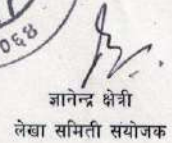 ०६४
ज्ञानेन्द्र क्षेत्री
लेखा समिती संयोजक